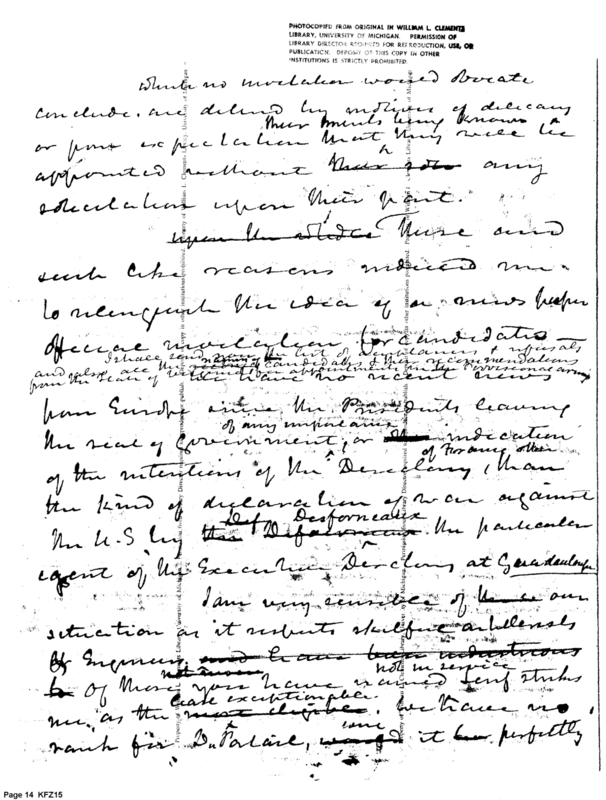 PHOTOCOPIED FROM ORIGINAL IN WILLIAM L. CLEMENTS
LIBRARY, UNIVERSITY OF MICHIGAN. PERMISSION OF
LIBRARY DIRECTOR REQUIRED FOR REPRODUCTION, USE, OR
PUBLICATION. DEPOSIT OF THIS COPY IN OTHER
INSTITUTIONS IS STRICTLY PROHIBITED.
where no invitation would
conclude. are by motives of delicacy
their merits being known
or from expectation that they will be
appointed without any
solicitation upon their part.
upon the These and
such like reasons induced me
to relinquish the idea of a news paper
official invitation for candidates
I shall send the list of acceptances & refusals
and also all the names of candidates & their recommendations
from the State of for appointments in the Provisional army
have no recent news
from Europe since the Presidents leaving
of any importance
the seat of Government, or indication
of France, other
of the intentions of the Directory, than
the kind of declaration of war against
Desforneaux
the U.S by the particular
agent of the Executive Directory at Guadaloupe
I am very sensible of our
situation as it respects skilful Artillerists
& Engineers, and have
not in service
Of those you have named Senf strikes
less exceptionable
me, as the We have no
rank for Du Portail, it perfectly
Page 14 KFZ15